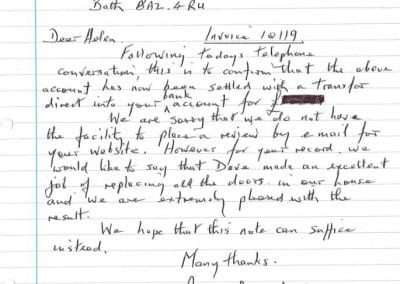 Bath BA2 4RU
Dear Helen, Invoice 12119
Following todays telephone
conversation, this is to confirm that the above
account has now been settled with a transfer
direct into your bank account for £
We are sorry that we do not have
the facility to place a review by e.mail for
your website. However for your record, we
would like to say that Dave made an excellent
job of replacing all the doors in our house
and we are extremely pleased with the
result.
We hope that this note can suffice
instead.
Many thanks.